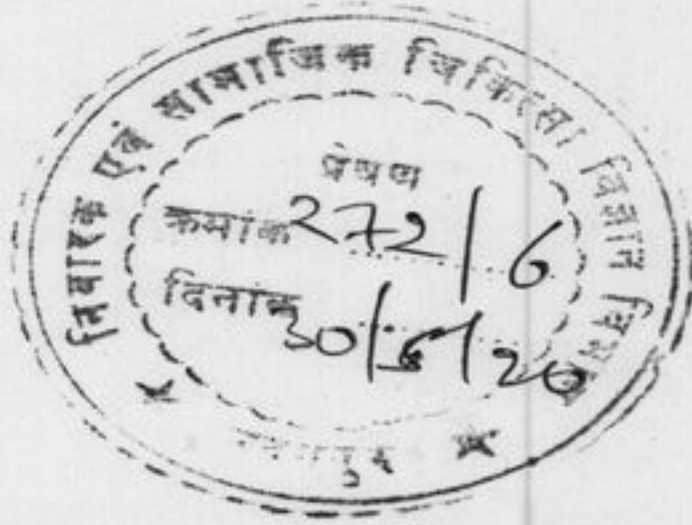 निवारक एवं सामाजिक चिकित्सा विज्ञान विभाग
प्रेषण
क्रमांक 272/6
दिनांक 30/5/20